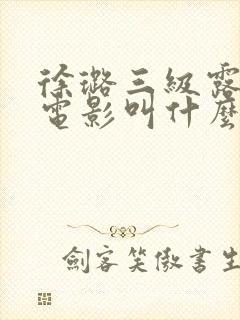 徐璐三級露
電影叫什麼
劍客笑傲書生